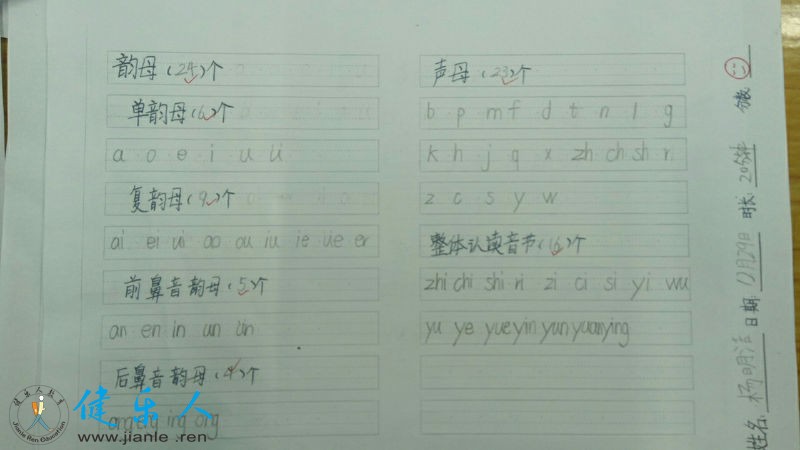 韵母(24)个
单韵母(6)个
a o e i u ü
复韵母(9)个
ai ei ui ao ou iu ie üe er
前鼻音韵母(5)个
an en in un ün
后鼻音韵母(4)个
ang eng ing ong
声母(23)个
b p m f d t n l g
k h j q x zh ch sh r
z c s y w
整体认读音节(16)个
zhi chi shi ri zi ci si yi wu
yu ye yue yin yun yuan ying
姓名: 杨明洁 日期: 12月29日 时长 20分钟 分数
健乐人教育
Jianle Ren Education
健乐人
www.jianle.ren